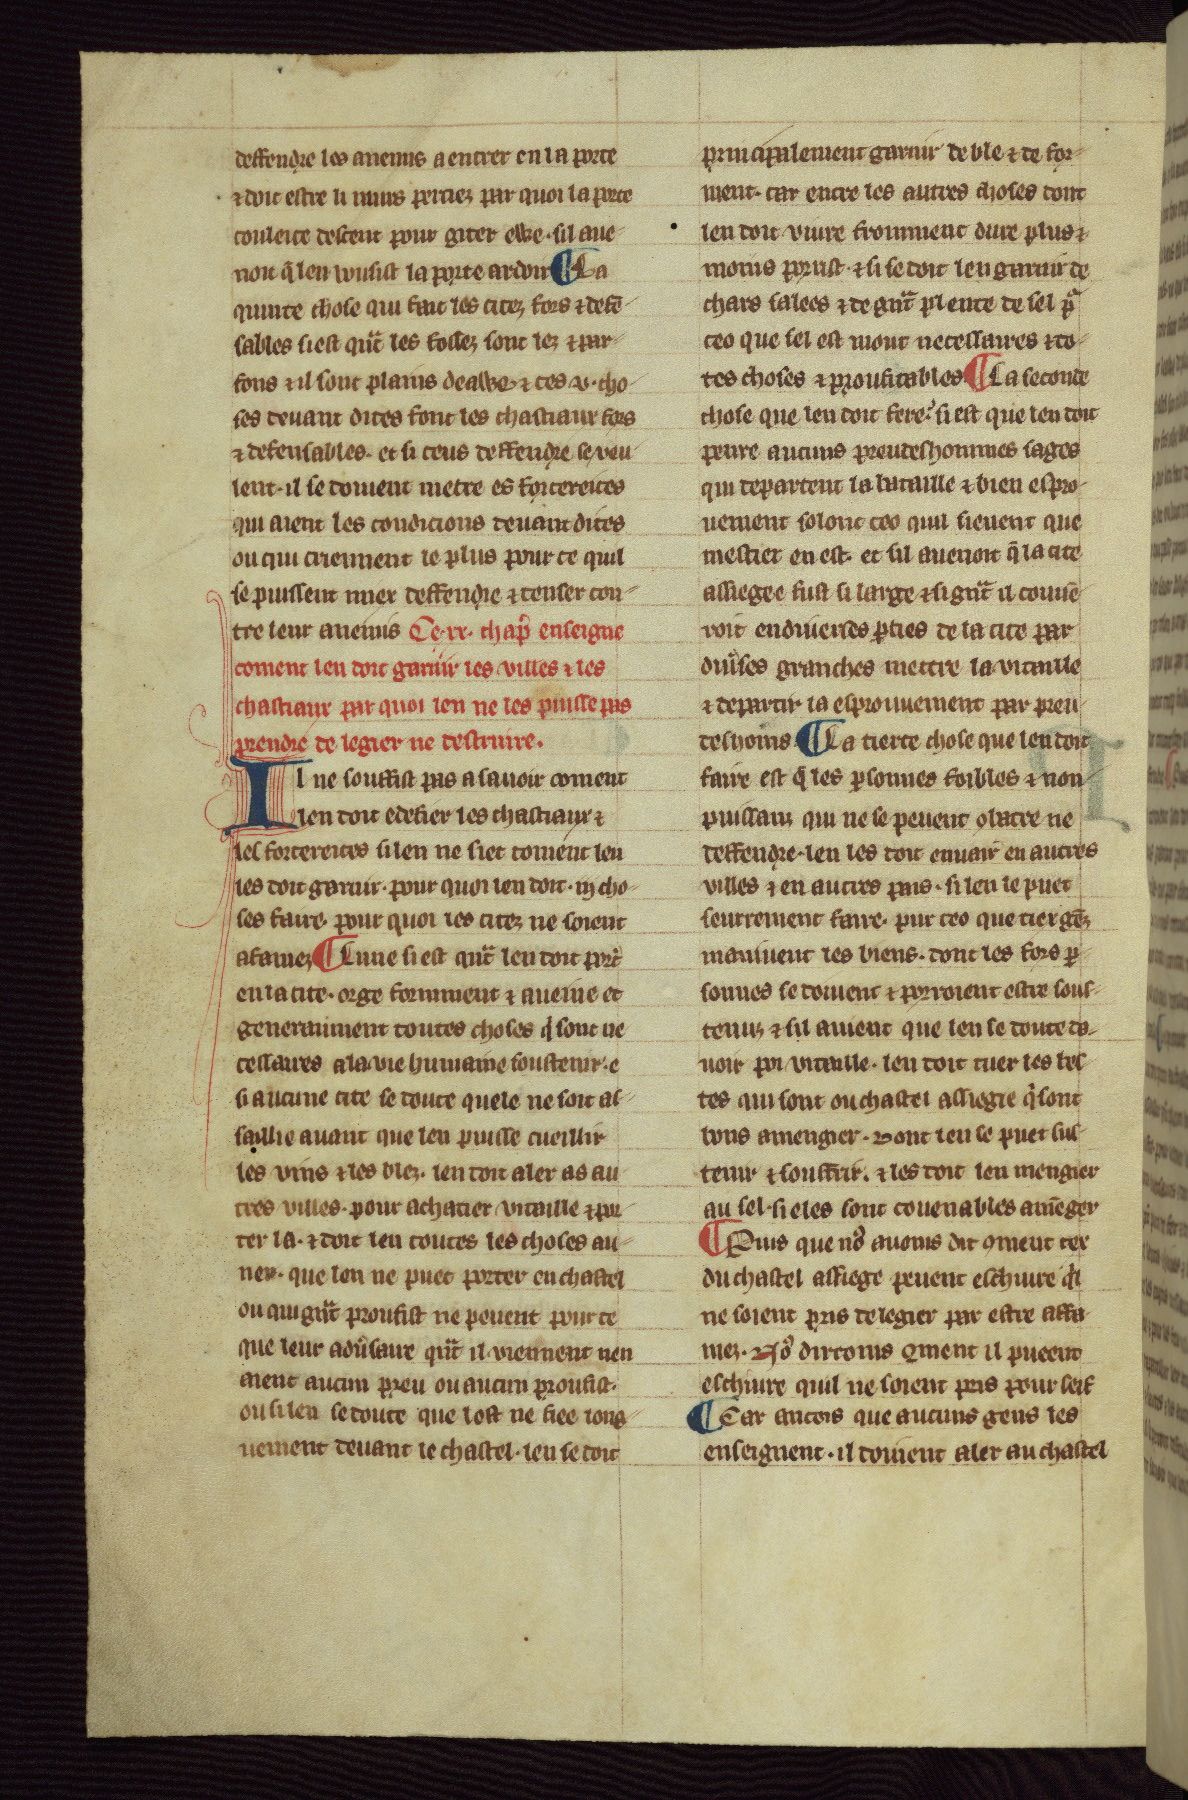 deffendre les anemis a entrer en la porte
⁊ doit estre li murs perciez par quoi la porte
couleice descent pour giter ewe· sil aue-
noit q̄ len vousist la porte ardoir ¶ La
quinte chose qui fait les citez fors ⁊ defē-
sables si est qu̅t les fossez sont lez ⁊ par-
fons ⁊ il sont plains de awe· ⁊ ces ·v· cho-
ses deuant dites font les chastiaux fors
⁊ defensables· et si ceus deffendre se veu-
lent· il se doiuent metre es forcereices
qui aient les condicions deuant dites
ou qui tiennent le plus pour ce quil
se puissent mier deffendre ⁊ tenser con-
tre leur anemis Ce ·xx· chap̄ enseigne
coment len doit garnir les villes ⁊ les
chastiaux par quoi len ne les puisse pas
prendre de legier ne destruire.
Il ne souffist pas a sauoir coment
len doit edefier les chastiaux ⁊
les forcereices si len ne siet coment len
les doit garnir· pour quoi len doit ·iij· cho-
ses faire· pour quoi les citez ne soient
afamez ¶ Lune si est qu̅t len doit port̄
en la cite· orge forniment ⁊ aueine et
generaument toutes choses q̄ sont ne
cessaires a la vie humaine soustenir· e
si aucune cite se doute quele ne soit as-
saillie auant que len puisse cueillir
les vins ⁊ les blez· len doit aler as au
tres villes· pour achatier vitaille ⁊ por
ter la· ⁊ doit len toutes les choses au-
 que lon ne puet porter en chastel
ou qui gn̅t proufist ne peuent pour ce
que leur adu̅saire qn̅t il viennent nen
aient aucun preu ou aucun proufist·
ou si len se doute que lost ne siee long-
uement deuant le chastel· len se doit
principalement garnir de ble ⁊ de for-
ment· car entre les autres choses dont
len doit viure fromment dure plus ⁊
moins porrist· ⁊ si se doit len garnir de
chars salees ⁊ de gn̅t plente de sel pͣ
ceo que sel est mout necessaires ⁊ to-
tes choses ⁊ proufitables ¶ La seconde
chose que len doit fere· si est que len doit
penre aucuns preudeshommes sages
qui departent la vitaille ⁊ bien espro-
uement solonc ceo quil sieuent que
mestier en est· et sil auenoit q̄ la cite
assiegee fust si large ⁊ si gn̅t il conuē-
roit en diuerses p̱ties de la cite par
diu̅ses granches mettre la vitaille
⁊ departir la esprouuement par preu-
deshoms· ¶ La tierce chose que len doit
faire est q̄ les p̱sonnes foibles ⁊ non-
puissanz qui ne se peuent  ne
deffendre· len les doit enuair̄ en autres
villes ⁊ en autres pais· si len le puet
seurrement faire· pur ceo que tier gēz
maniuent les biens· dont les fors p̱
sonnes se doiuent ⁊ porroient estre sous-
tenuz ⁊ sil auient que len se doute da-
uoir poi vitaille· len doit tuer les bes-
tes qui sont ou chastel assiegie q̄ sont
bons a mengier· dont len se puet sus-
tenir ⁊ souffrir· ⁊ les doit len mengier
au sel· si eles sont couenables a mēger
¶ Puis que noꝰ auoms dit ꝯment cex
du chastel assiege peuent eschiure q̄l
ne soient pris de legier par estre affa-
mez· Noꝰ dirroms ꝯment il pueent
eschiure quil ne soient pris pour seif
¶ Car ancois que aucuns gens les
enseignent· il doiuent aler au chastel